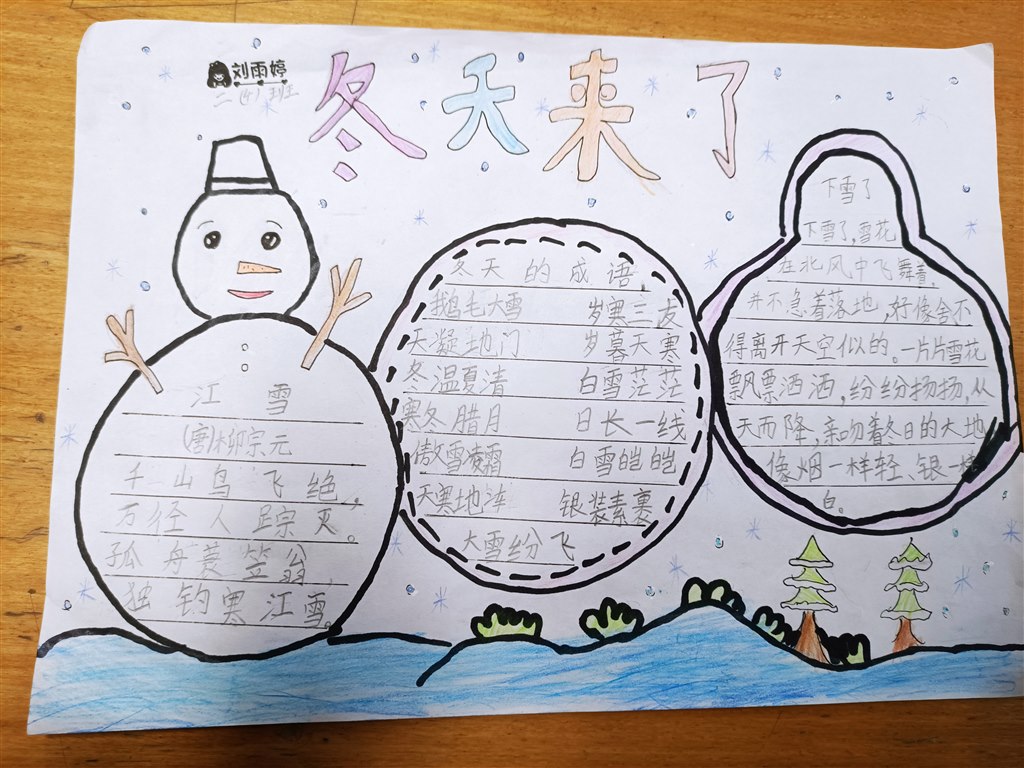 刘雨婷
二(4)班
冬天来了
江 雪
(唐)柳宗元
千山鸟飞绝,
万径人踪灭。
孤舟蓑笠翁,
独钓寒江雪。
冬天的成语
鹅毛大雪 岁寒三友
天凝地门 岁暮天寒
冬温夏清 白雪茫茫
寒冬腊月 日长一线
傲雪凌霜 白雪皑皑
天寒地冻 银装素裹
大雪纷飞
下雪了
下雪了,雪花
在北风中飞舞着,
并不急着落地,好像舍不
得离开天空似的。一片片雪花
飘飘洒洒,纷纷扬扬,从
天而降,亲吻着冬日的大地
像烟一样轻、银一样
白。